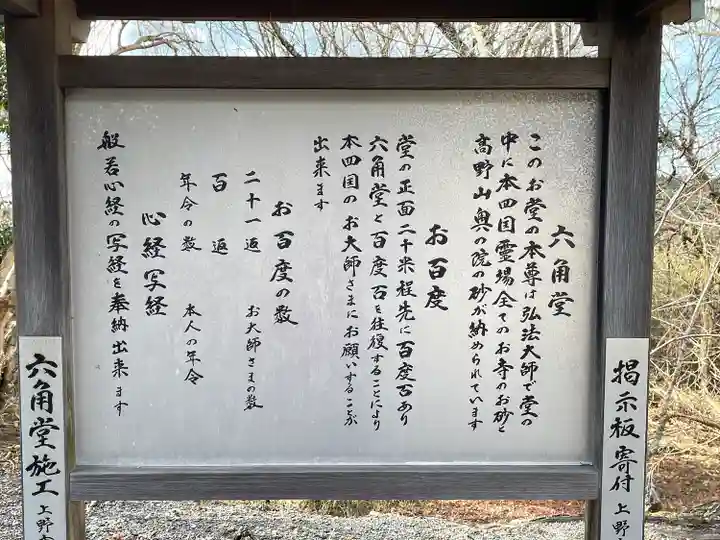 六角堂
このお堂の本尊は弘法大師で堂の
中に本四国霊場全てのお寺のお砂と
高野山奥の院の砂が納められています
お百度
堂の正面二十米程先に百度石あり
六角堂と百度石を往復することにより
本四国のお大師さまにお願いすることが
出来ます
お百度の数
二十一返 お大師さまの数
百返
年令の数 本人の年令
心経写経
般若心経の写経を奉納出来ます
掲示板寄付 上野
六角堂施工 上野